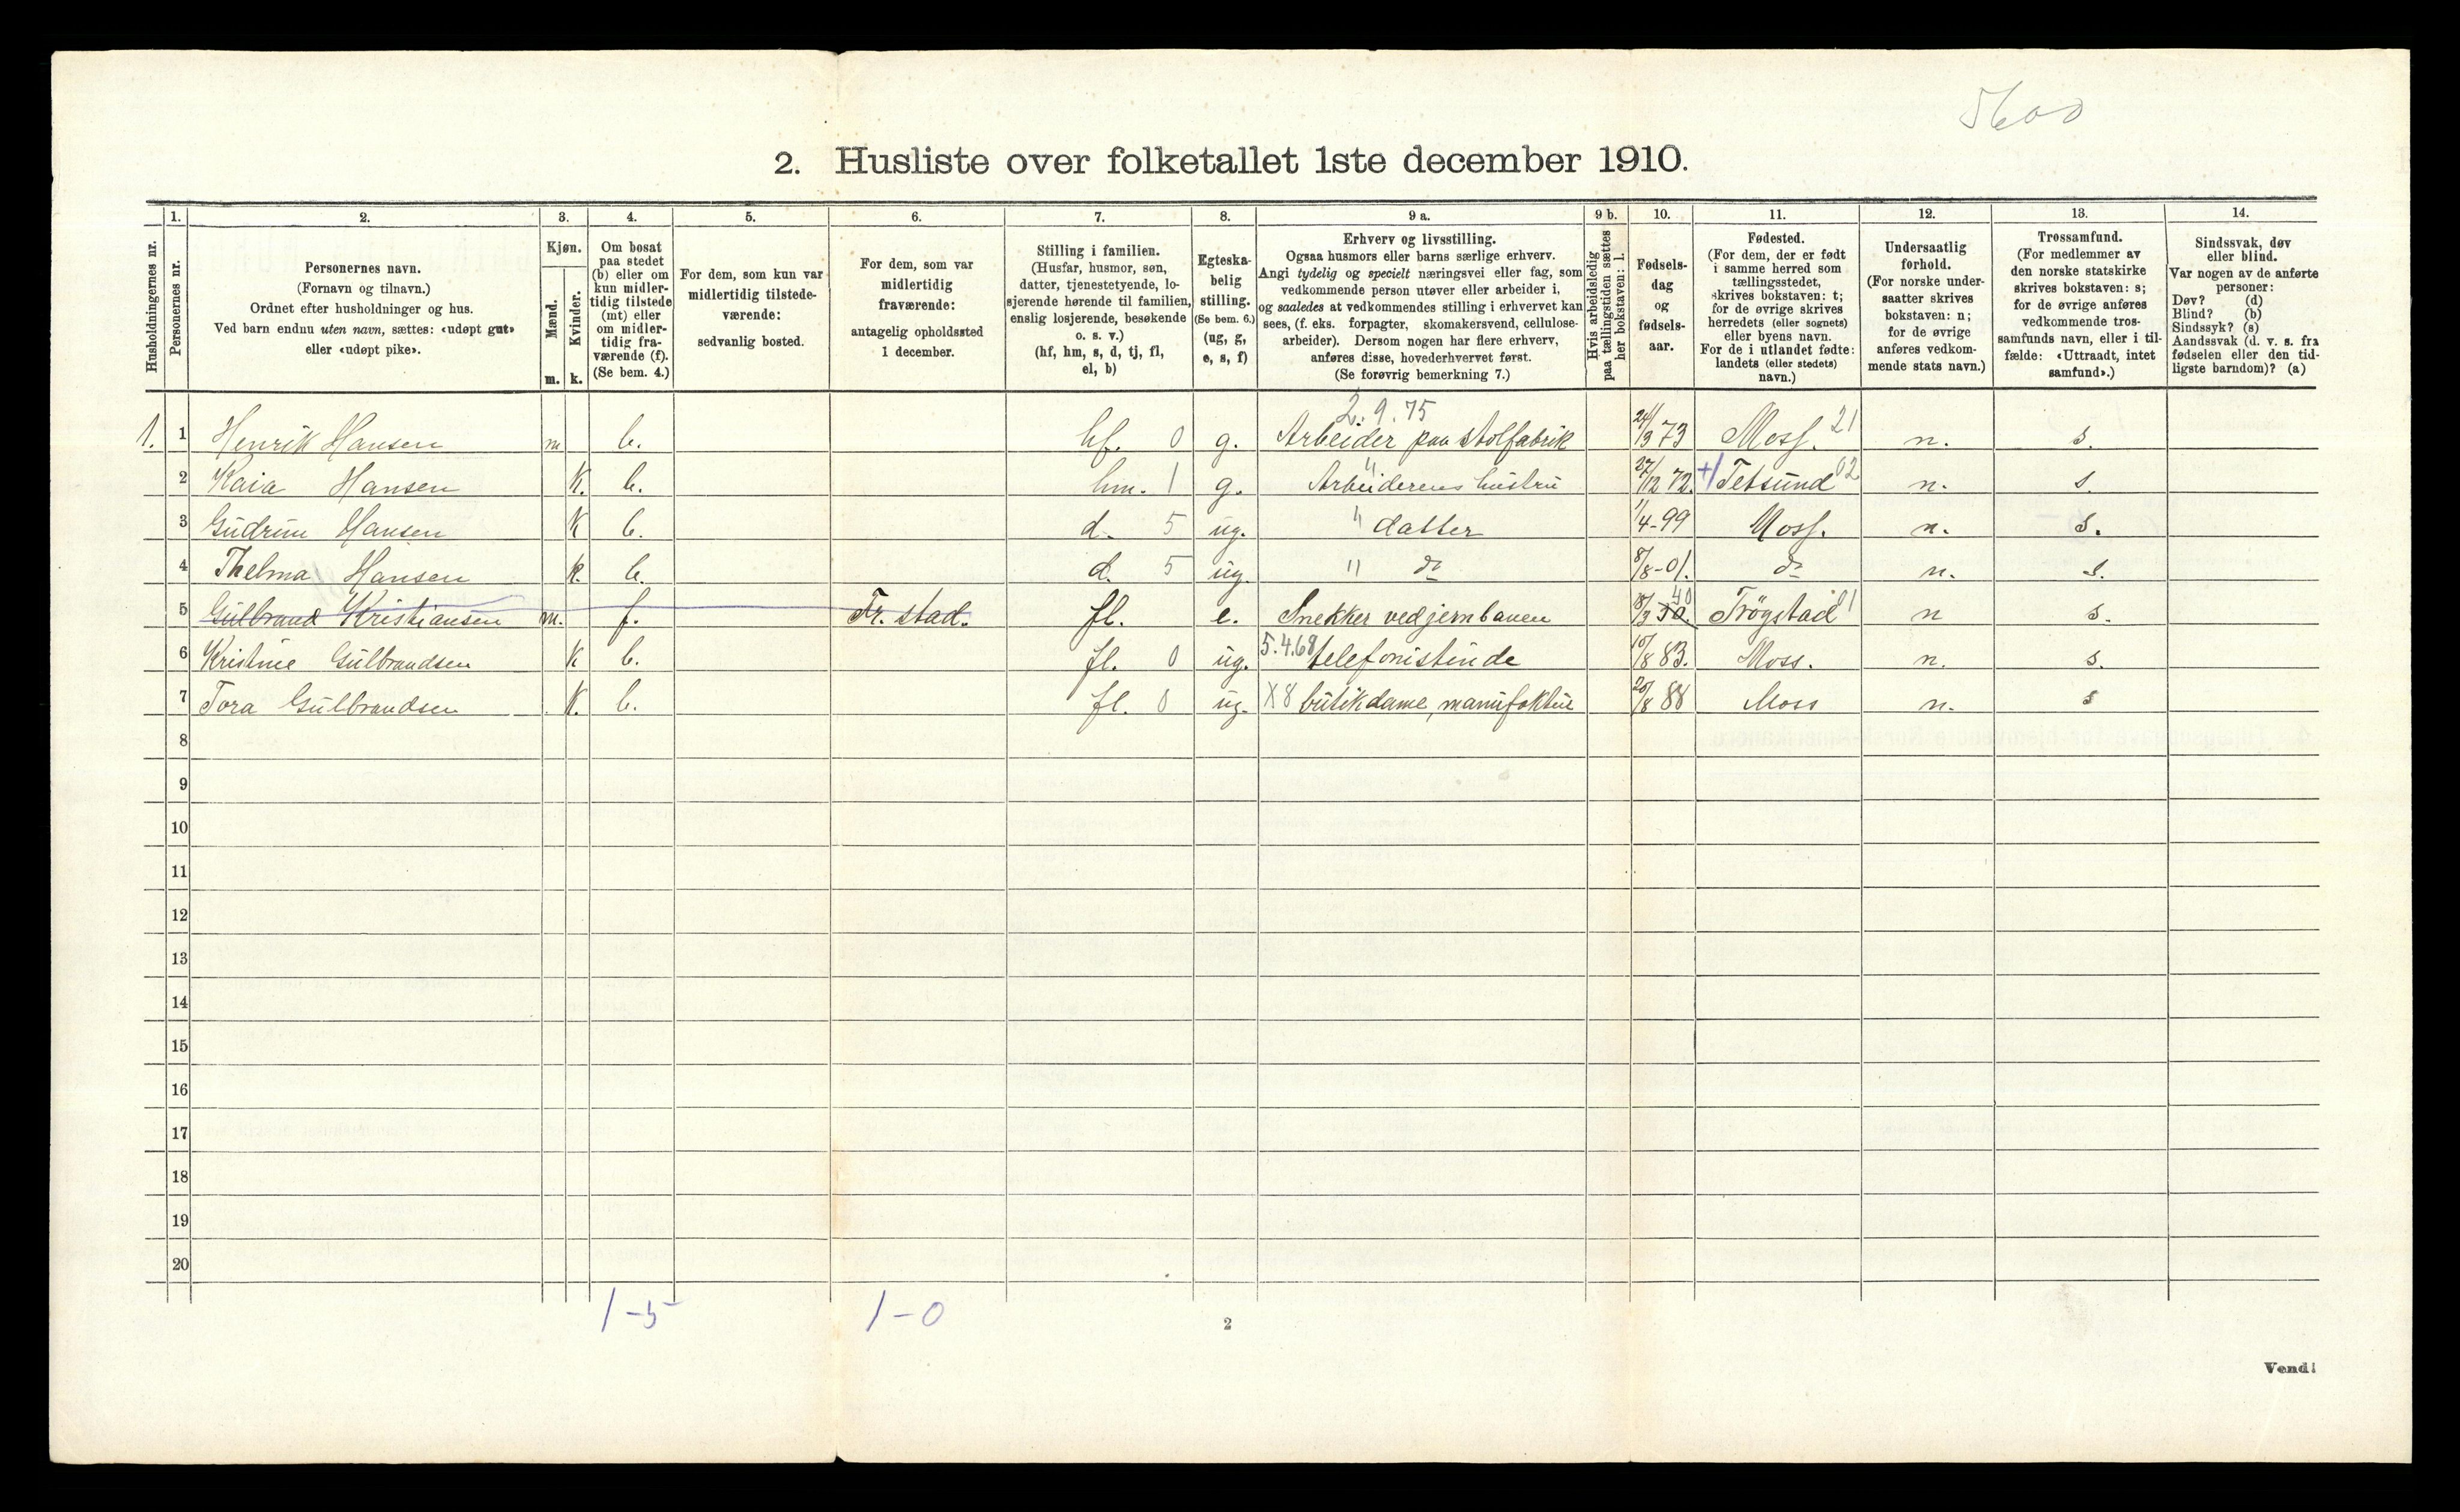 5600
2. Husliste over folketallet 1ste december 1910.
Husholdningernes nr.
1.
Personernes nr.
2.
Personernes navn.
(Fornavn og tilnavn.)
Ordnet efter husholdninger og hus.
Ved barn endnu uten navn, sættes: «udøpt gut»
eller «udøpt pike».
3.
Kjøn.
Mænd.
Kvinder.
m. k.
4.
Om bosat
paa stedet
(b) eller om
kun midler-
tidig tilstede
(mt) eller
om midler-
tidig fra-
værende (f).
(Se bem. 4.)
5.
For dem, som kun var
midlertidig tilstede-
værende:
sedvanlig bosted.
6.
For dem, som var
midlertidig
fraværende:
antagelig opholdssted
1 december.
7.
Stilling i familien.
(Husfar, husmor, søn,
datter, tjenestetyende, lo-
sjerende hørende til familien,
enslig losjerende, besøkende
o. s. v.)
(hf, hm, s, d, tj, fl,
el, b)
8.
Egteska-
belig
stilling.
(Se bem. 6.)
(ug, g,
e, s, f)
9 a.
Erhverv og livsstilling.
Ogsaa husmors eller barns særlige erhverv.
Angi tydelig og specielt næringsvei eller fag, som
vedkommende person utøver eller arbeider i,
og saaledes at vedkommendes stilling i erhvervet kan
sees, (f. eks. forpagter, skomakersvend, cellulose-
arbeider). Dersom nogen har flere erhverv,
anføres disse, hovederhvervet først.
(Se forøvrig bemerkning 7.)
9 b.
Hvis arbeidsledig
paa tællingstiden sættes
her bokstaven: l.
10.
Fødsels-
dag
og
fødsels-
aar.
11.
Fødested.
(For dem, der er født
i samme herred som
tællingsstedet,
skrives bokstaven: t;
for de øvrige skrives
herredets (eller sognets)
eller byens navn.
For de i utlandet fødte:
landets (eller stedets)
navn.)
12.
Undersaatlig
forhold.
(For norske under-
saatter skrives
bokstaven: n;
for de øvrige
anføres vedkom-
mende stats navn.)
13.
Trossamfund.
(For medlemmer av
den norske statskirke
skrives bokstaven: s;
for de øvrige anføres
vedkommende tros-
samfunds navn, eller i til-
fælde: «Uttraadt, intet
samfund».)
14.
Sindssvak, døv
eller blind.
Var nogen av de anførte
personer:
Døv? (d)
Blind? (b)
Sindssyk? (s)
Aandssvak (d. v. s. fra
fødselen eller den tid-
ligste barndom)? (a)
2.9.75
1. 1 Henrik Hansen m b. hf. 0 g. Arbeider paa stolfabrik 24/3 73 Moss. 21 n. s.
2 Kaia Hansen K. b. hm. 1 g. Arbeiderens hustru 27/12 72. +1 Tetsund 02 n. s.
3 Gudrun Hansen K b. d. 5 ug. " datter 1/4-99 Moss. n. s.
4 Thelma Hansen k. b. d. 5 ug. " do 8/8-01. do n. s.
5 Gulbrand Kristiansen m. f. Fr. stad. fl. e. Snekker ved jernbanen 18/3 40 Trögstad 01 n s.
6 Kristine Gulbrandsen k b. fl. 0 ug. 5.4.68 telefonistinde 10/8 83. Moss. n. s.
7 Tora Gulbrandsen K. b. fl. 0 ug. X8 butikdame, manufaktur 20/8 88 Moss n. s
8
9
10
11
12
13
14
15
16
17
18
19
20
1-5 1-0
2
Vend!